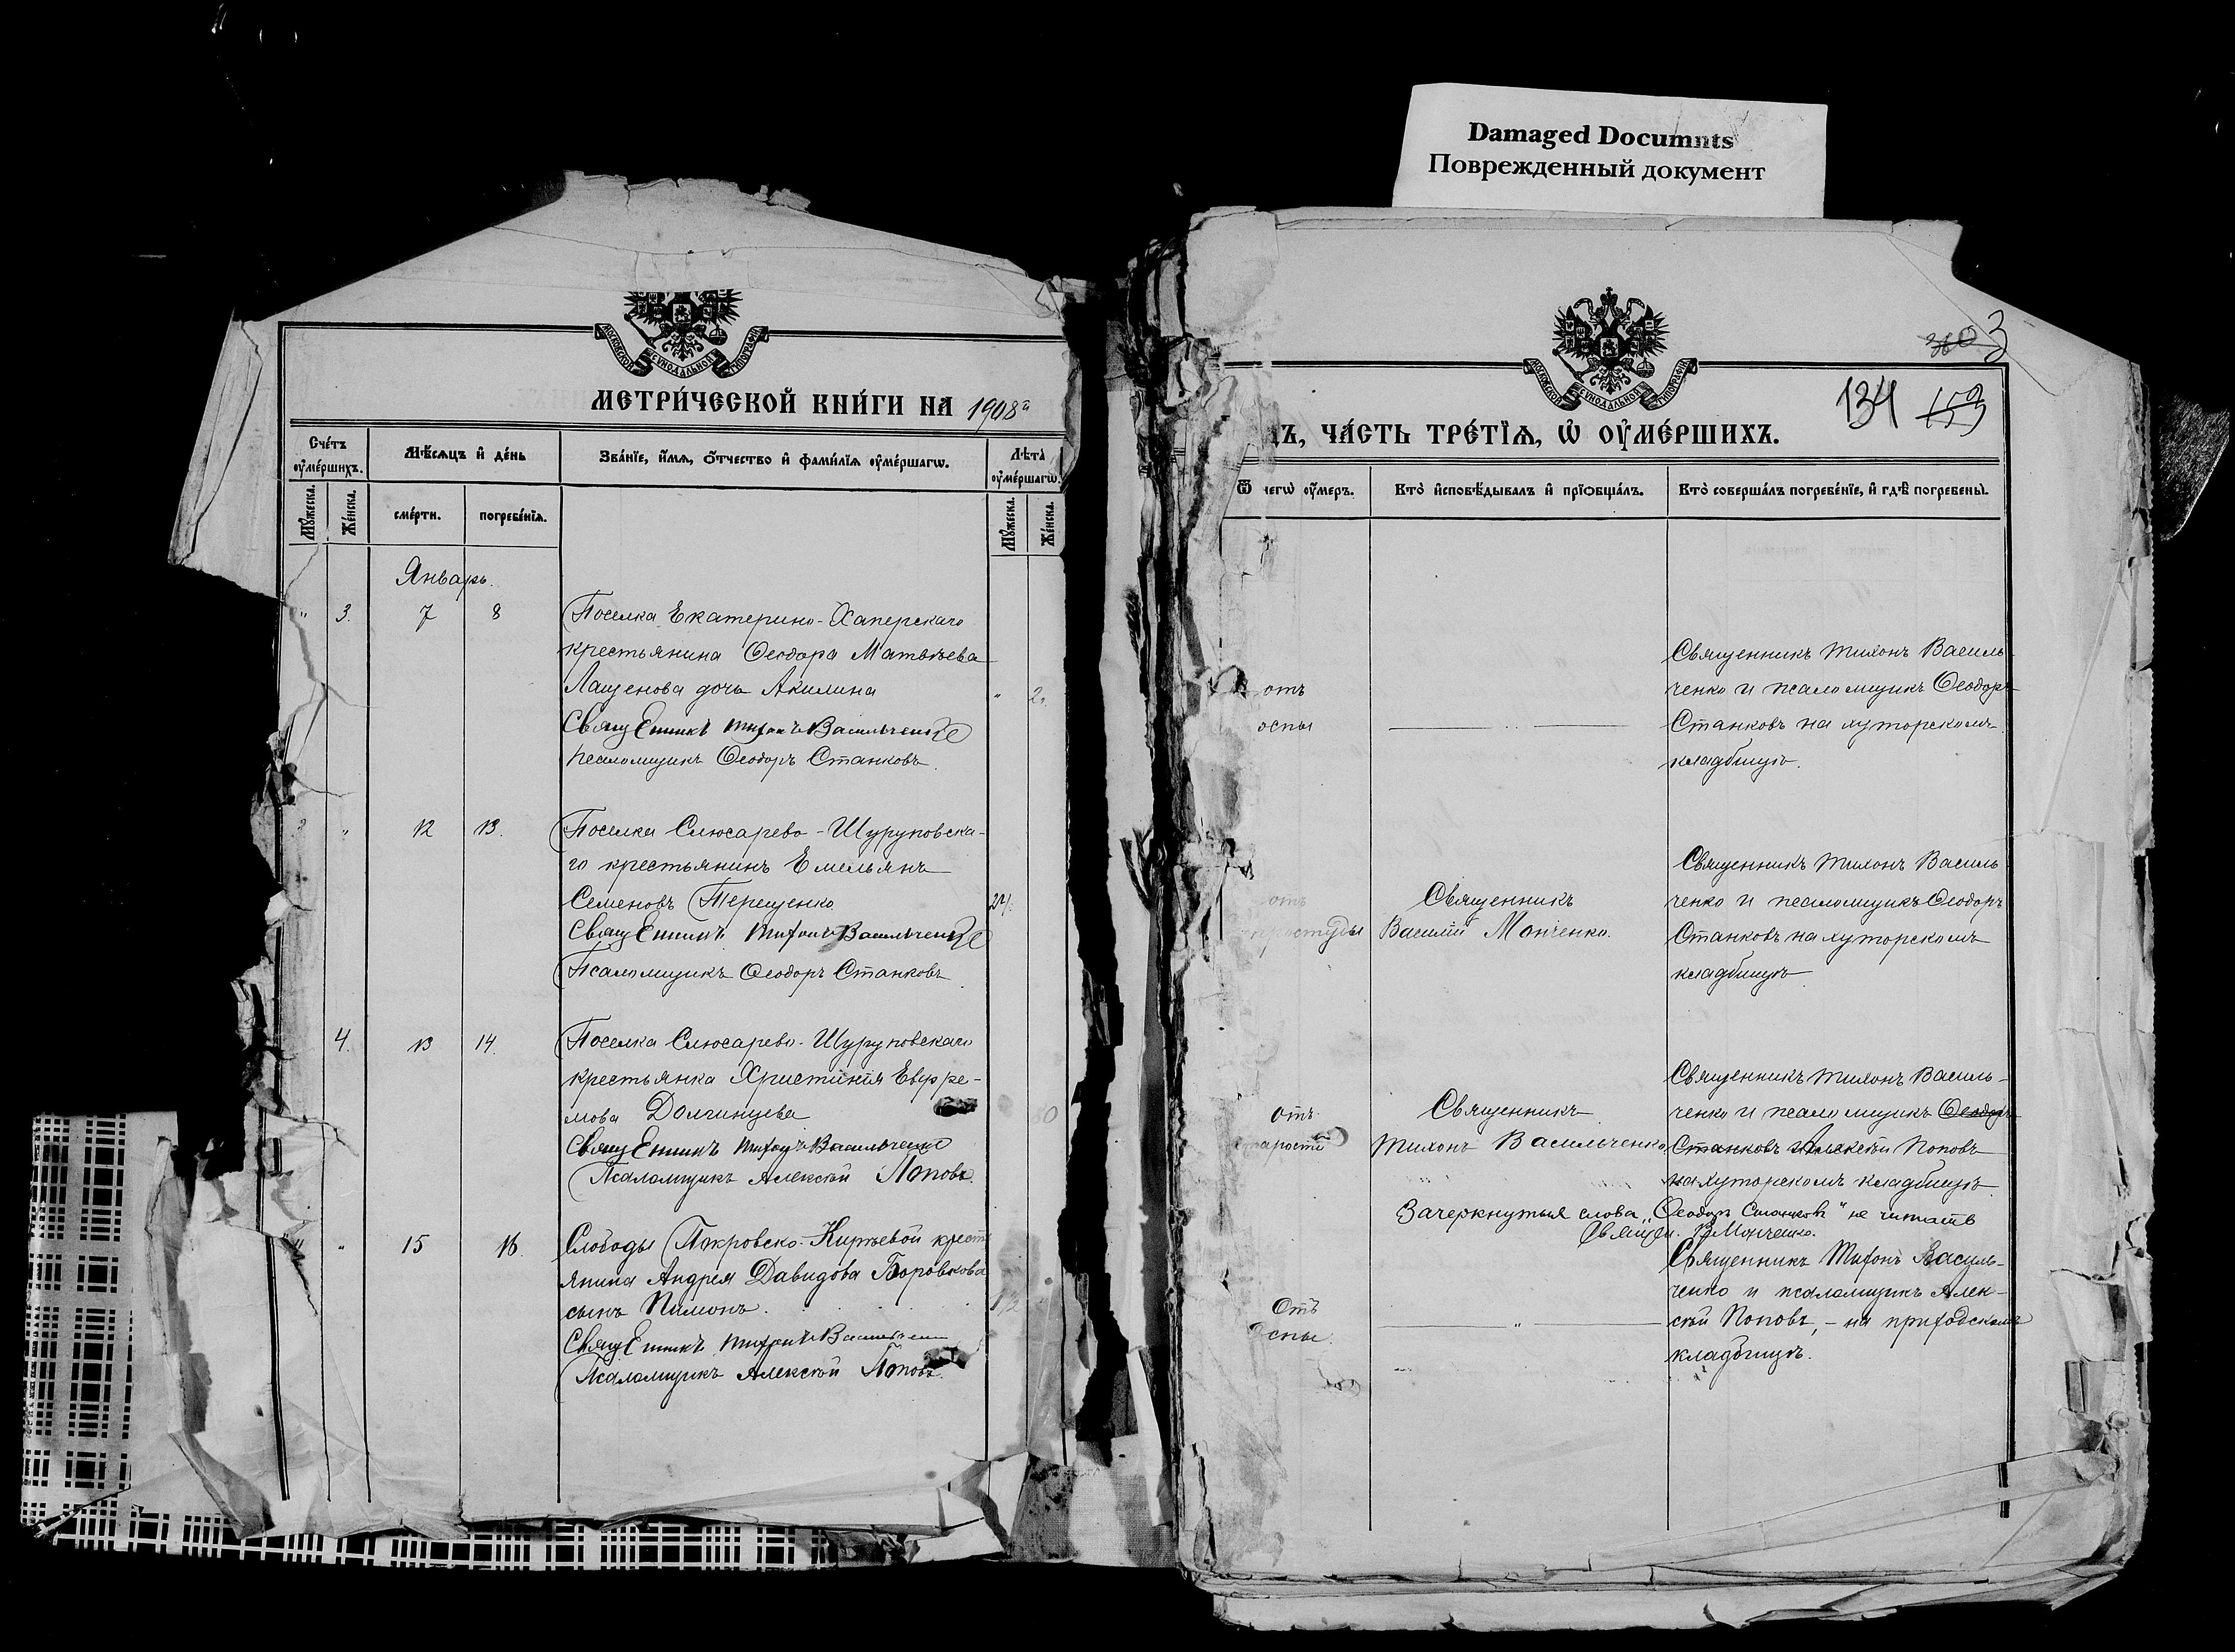 Damaged Documnts
Поврежденный документ
МОСКОВСКОЙ СѴНОДАЛЬНОЙ ТИПОГРАФІИ
МЕТРИ́ЧЕСКОЙ КНИ́ГИ НА 1908й
Сче́тъ ᲂу҆ме́ршихъ.
Мѣ́сяцъ и҆ де́нь
Зва́нїе, и҆́мѧ, ѻ҆́тчество и҆ фами́лїѧ ᲂу҆ме́ршагѡ.
Лѣта̀ ᲂу҆ме́ршагѡ.
Мꙋ́жеска.
Же́нска.
сме́рти.
погребе́нїѧ.
Мꙋ́жеска.
Же́нска.
Январь.
" 3. 7 8
Поселка Екатерино-Хаперскаго
крестьянина Ѳеодора Матвѣева
Лащенова дочь Акилина " 2.
Священникъ Тихонъ Васильченко
псаломщикъ Ѳеодоръ Станковъ.
" 12 13.
Поселка Слюсарево-Шуруповска-
го крестьянинъ Емельянъ
Семеновъ Терещенко 24.
Священникъ Тихонъ Васильченко
Псаломщикъ Ѳеодоръ Станковъ.
4. 13 14.
Поселка Слюсарево-Шуруповскаго
крестьянка Христинія Евфре-
мова Долгинцева 60
Священникъ Тихонъ Васильченко
Псаломщикъ Алексѣй Поповъ.
" 15 16.
Слободы Покровско-Кирѣевой крест
янина Андрея Давидова Боровкова
сынъ Пимонъ.
Священникъ Тихонъ Васильченко
Псаломщикъ Алексѣй Поповъ.
3603
134 159
МОСКОВСКОЙ СѴНОДАЛЬНОЙ ТИПОГРАФІИ
ДЪ, ЧА́СТЬ ТРЕ́ТЇѦ, Ѡ҆ ОУ҆МЕ́РШИХЪ.
Ѿ чегѡ̀ ᲂу҆́меръ.
Кто̀ и҆сповѣ́дывалъ и҆ прїѡбща́лъ.
Кто̀ соверша́лъ погребе́нїе, и҆ гдѣ̀ погребены̀.
отъ
оспы
Священникъ Тихонъ Василь
ченко и псаломщикъ Ѳеодоръ
Станковъ на хуторскомъ
кладбищѣ.
отъ
простуды
Священникъ
Василій Монченко.
Священникъ Тихонъ Василь
ченко и псаломщикъ Ѳеодоръ
Станковъ на хуторскомъ
кладбищѣ.
отъ
старости
Священникъ
Тихонъ Васильченко
Священникъ Тихонъ Василь-
ченко и псаломщикъ Ѳеодоръ
Станковъ Алексѣй Поповъ
на хуторскомъ кладбищѣ
Зачеркнутыя слова „Ѳеодоръ Станковъ" не читать
Священ. В. Монченко.
Отъ
Оспы.
"
Священникъ Тихонъ Василь-
ченко и псаломщикъ Алек-
сѣй Поповъ, - на приходскомъ
кладбищѣ.